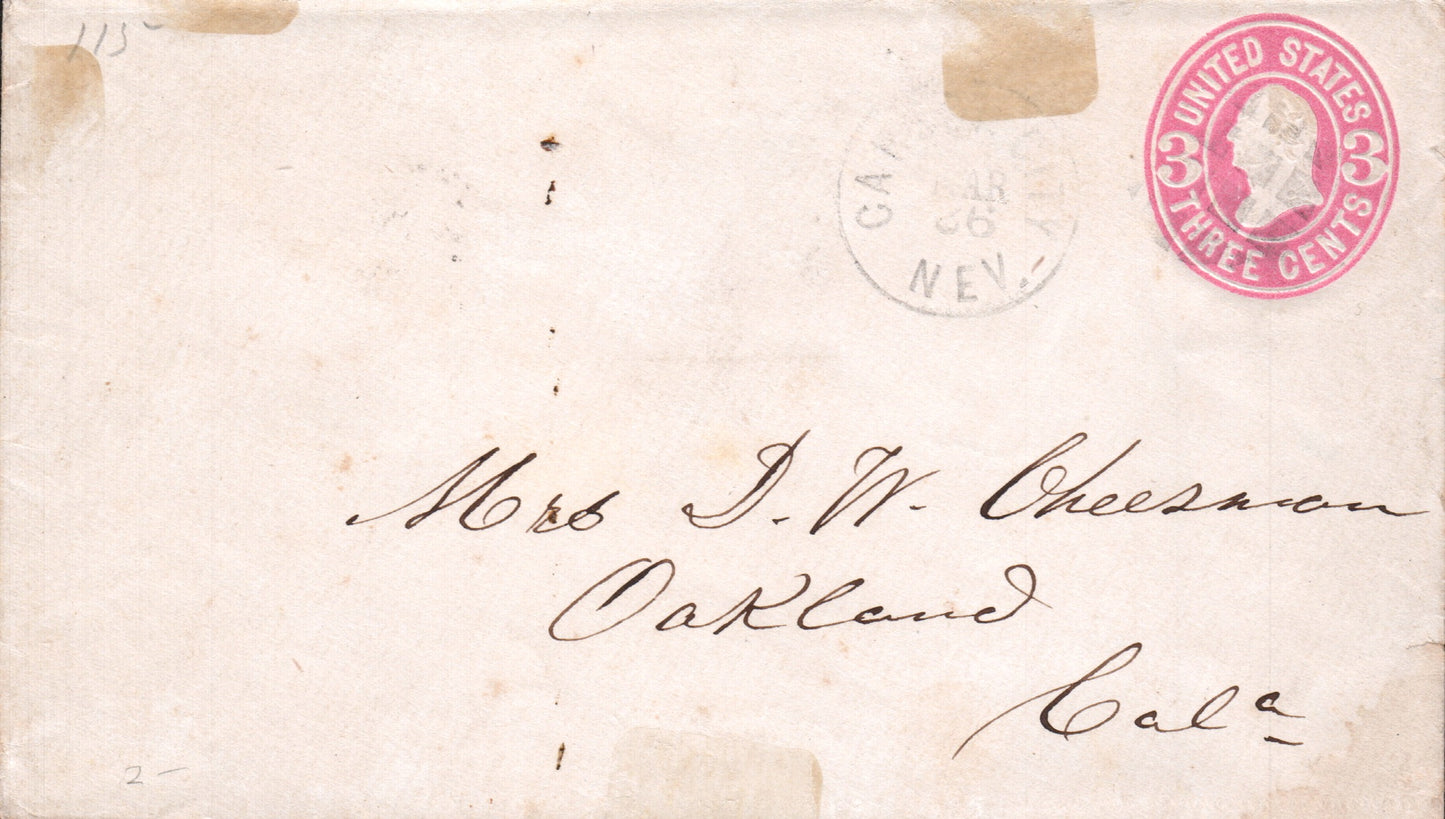 115-
UNITED STATES
3 3
THREE CENTS
CARSON CITY
MAR
26
NEV.
Mrs D. W. Cheesman
Oakland
Cala
2-